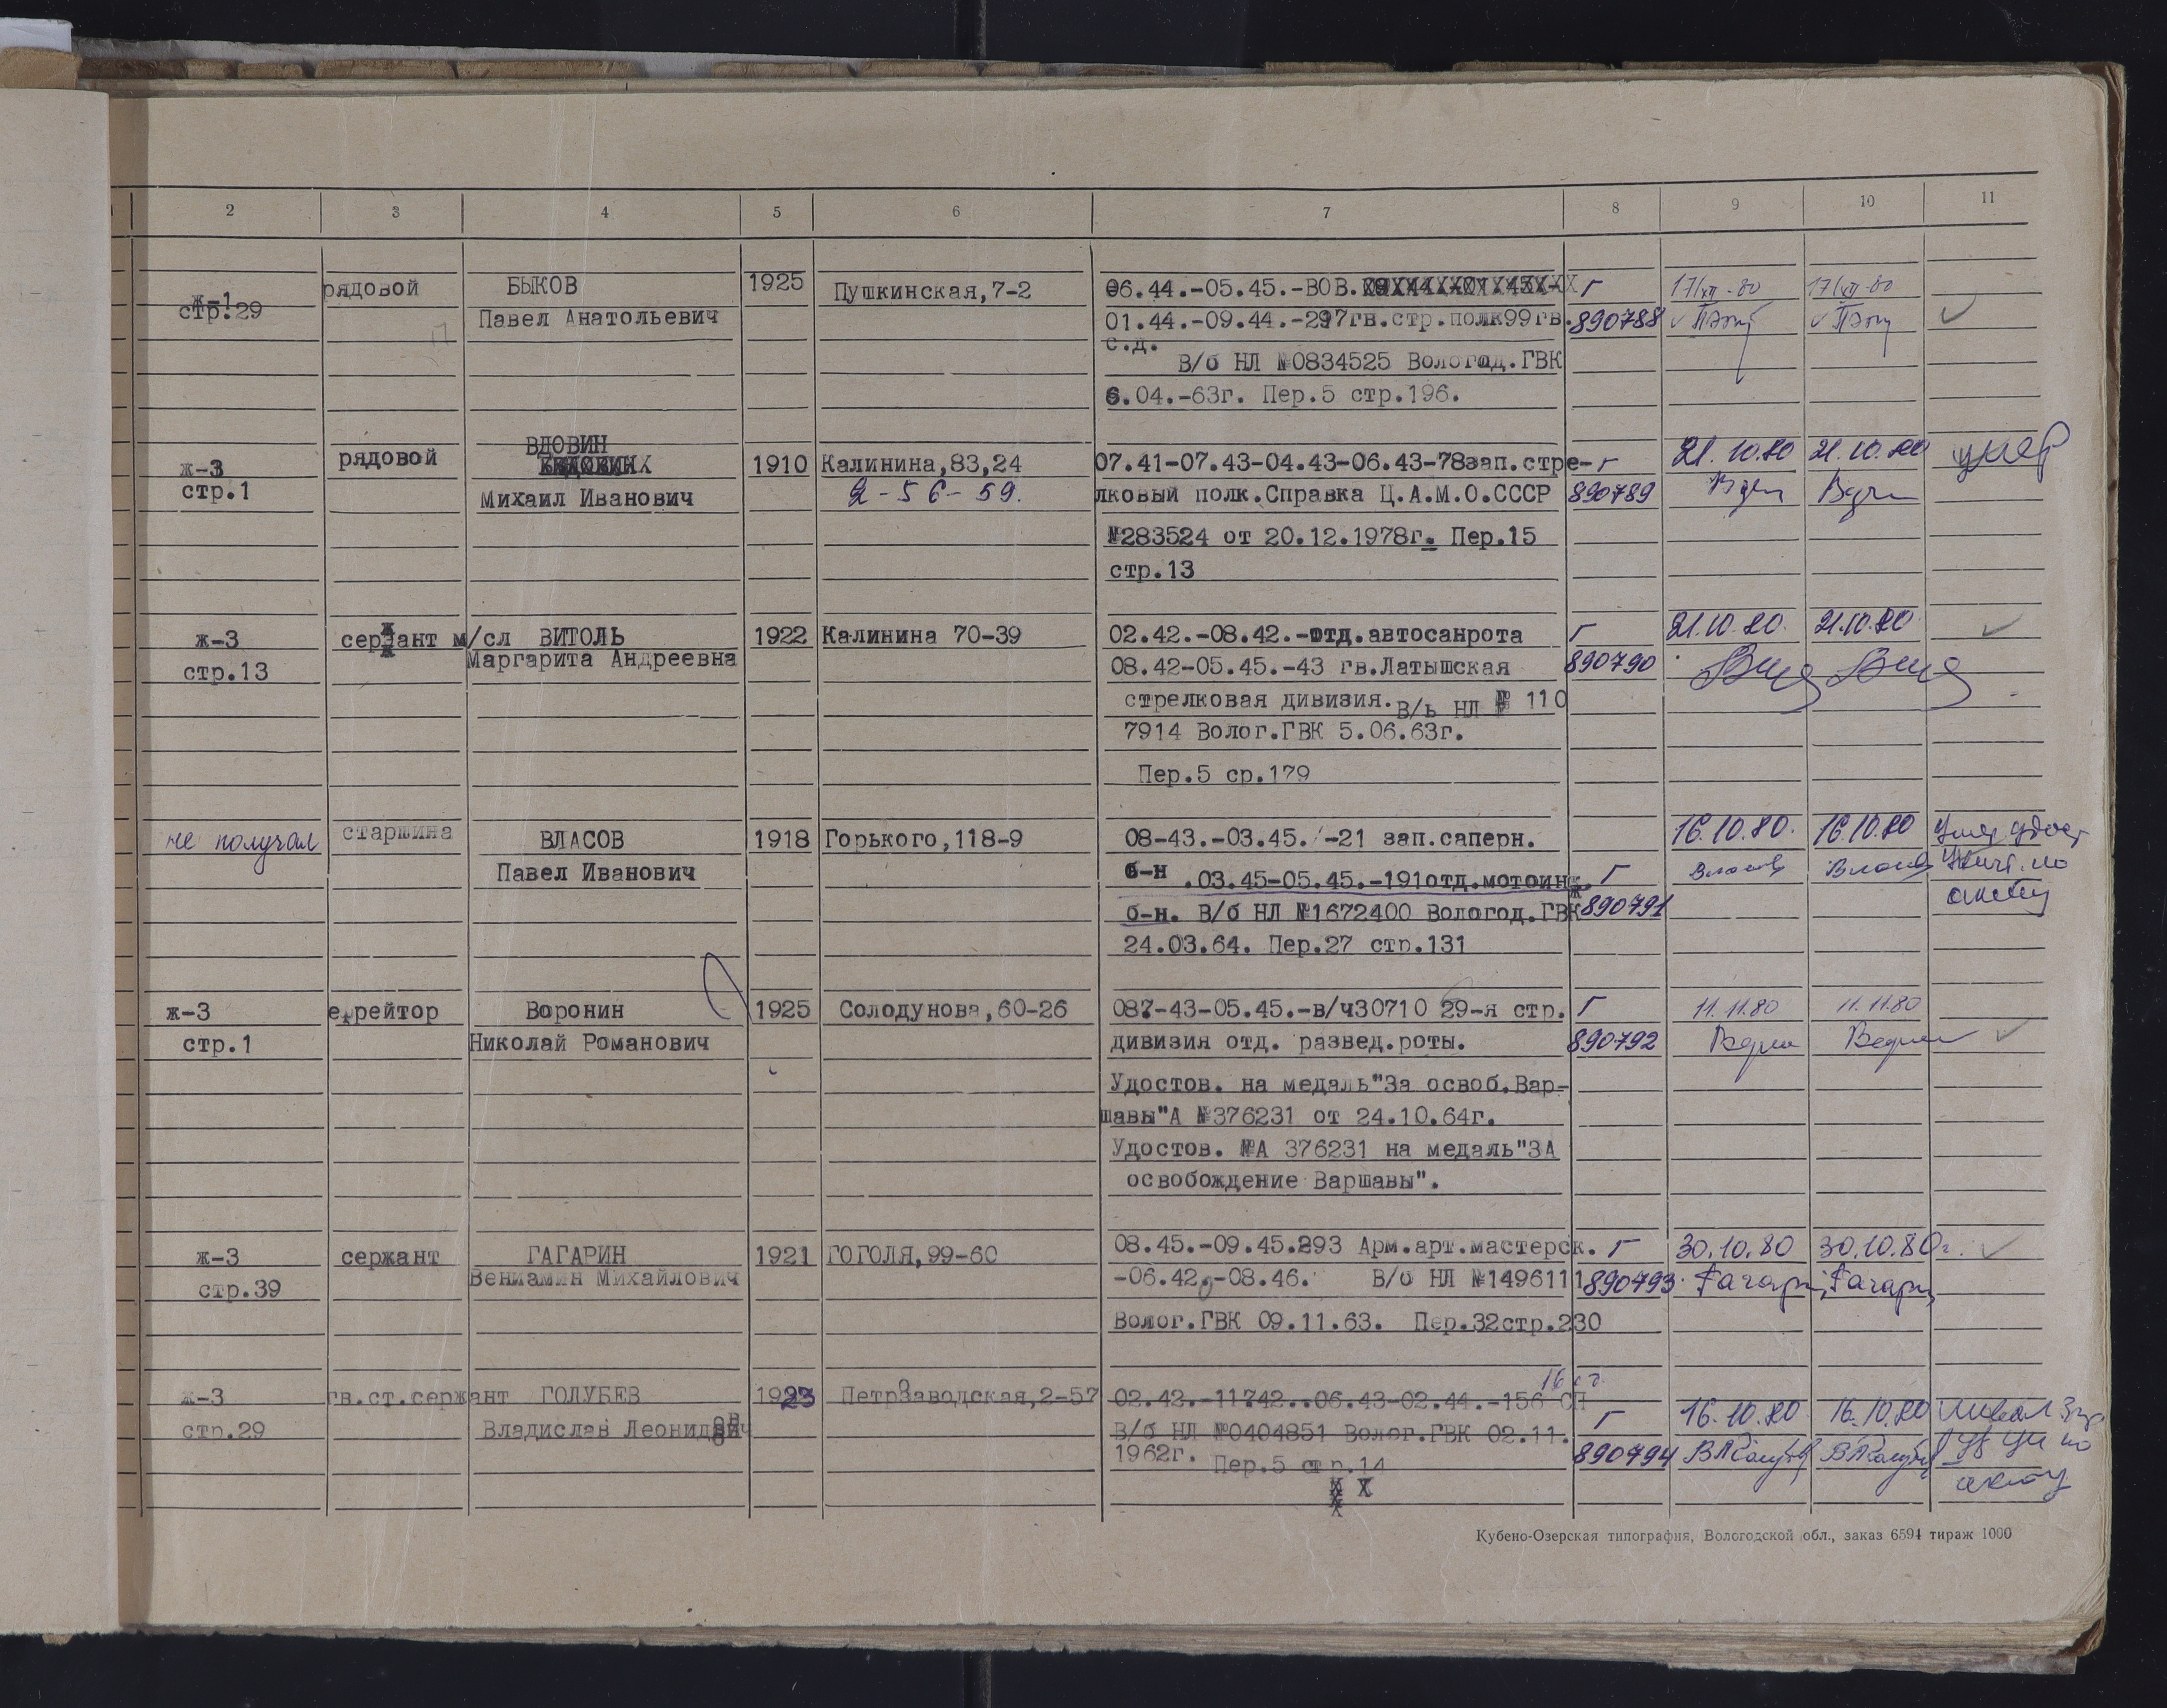 2 3 4 5 6 7 8 9 10 11
ж-1 рядовой БЫКОВ 1925 Пушкинская,7-2 06.44.-05.45.-ВОВ. Г 17/XII-80 17/XII-80
стр.29 Павел Анатольевич 01.44.-09.44.-297гв.стр.полк99гв. 890788
с.д.
В/б НЛ №0834525 Вологод.ГВК
6.04.-63г. Пер.5 стр.196.
ВДОВИН
ж-3 рядовой 1910 Калинина,83,24 07.41-07.43-04.43-06.43-78зап.стре- г 21.10.80 21.10.80 умер
стр.1 Михаил Иванович 2-56-59. лковый полк.Справка Ц.А.М.О.СССР 890789
№283524 от 20.12.1978г. Пер.15
стр.13
ж-3 сержант м/сл ВИТОЛЬ 1922 Калинина 70-39 02.42.-08.42.-отд.автосанрота Г 21.10.80. 21.10.80
стр.13 Маргарита Андреевна 08.42-05.45.-43 гв.Латышская 890790
стрелковая дивизия. В/ь НЛ № 110
7914 Волог.ГВК 5.06.63г.
Пер.5 ср.179
не получал старшина ВЛАСОВ 1918 Горького,118-9 08-43.-03.45. -21 зап.саперн. 16.10.80. 16.10.80 Умер удост
Павел Иванович б-н .03.45-05.45.-191отд.мотоинж. Г Власов Власов Унич. по
б-н. В/б НЛ №1672400 Вологод.ГВК 890791 акту
24.03.64. Пер.27 стр.131
ж-3 е рейтор Воронин 1925 Солодунова,60-26 087-43-05.45.-в/ч30710 29-я стр. Г 11.11.80 11.11.80
стр.1 Николай Романович дивизия отд. развед.роты. 890792
Удостов. на медаль"За освоб.Вар-
шавы"А №376231 от 24.10.64г.
Удостов. №А 376231 на медаль"ЗА
освобождение Варшавы".
ж-3 сержант ГАГАРИН 1921 ГОГОЛЯ,99-60 08.45.-09.45.293 Арм.арт.мастерск. г 30.10.80 30.10.80г.
стр.39 Вениамин Михайлович -06.42.-08.46. В/б НЛ №1496111 890793 Гагарин Гагарин
Волог.ГВК 09.11.63. Пер.32стр.230
ж-3 гв.ст.сержант ГОЛУБЕВ 1923 ПетрЗаводская,2-57 02.42.-11742..06.43-02.44.-156 СП
стр.29 Владислав Леонидович В/б НЛ №0404851 Волог.ГВК 02.11. Г 16.10.80 16.10.80
1962г. Пер.5 стр.14 890794 ВЛГолубев ВЛГолубев акту
Кубено-Озерская типография, Вологодской обл., заказ 6594 тираж 1000